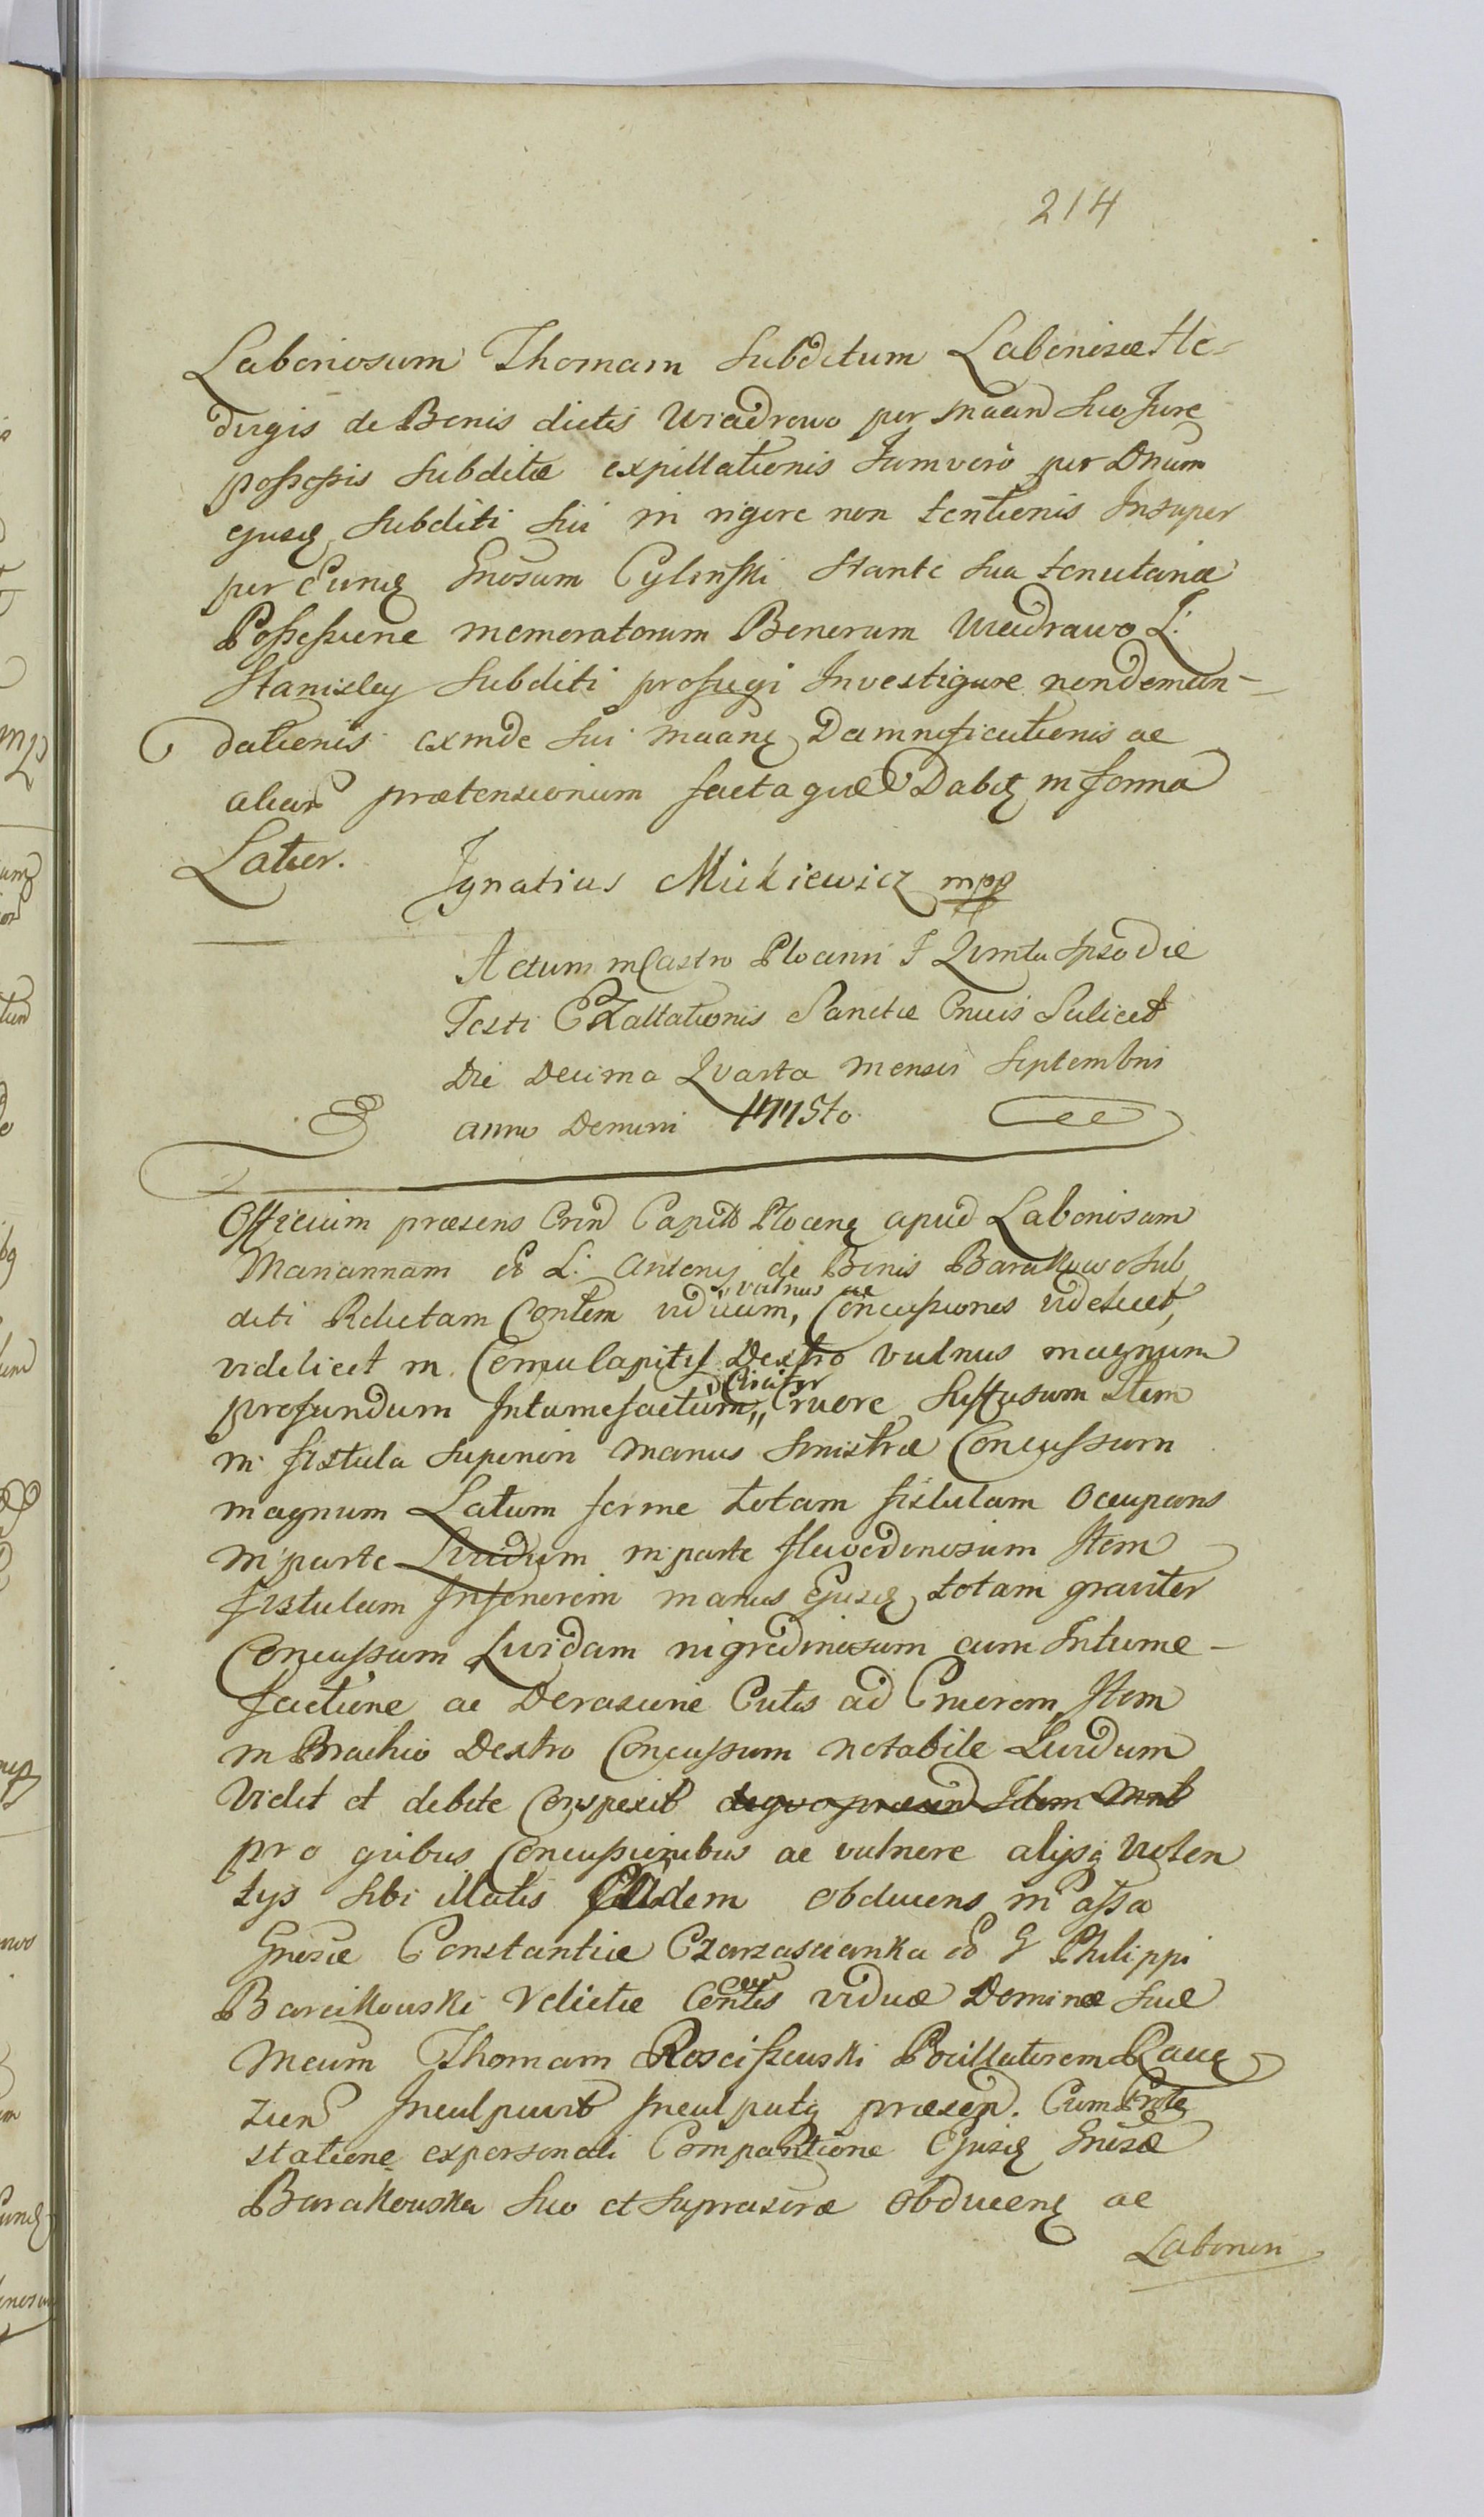 214
Laboriosum Thomam Subditum Laboriosæ He-
dvigis de Bonis dictis Wiadrowo per Maand Suo Jure
possessis Subditæ expillationis Jamvero per Dnum
ejusq Subditi Sui in rigore non tentionis Insuper
per Eunq Gnosum Cylinski Stante Sua tenutaria
Possessione memoratorum Bonorum Wiadrowo L.
Stanisley Subditi profugi Investigare nondeman-
dationis exinde Sui Maanq Damnificationis ac
aliar prætensionum facta quæ Dabit in forma
Latior.
Ignatius Mickiewicz mpp
Actum in Castro Plocenn F Quinta Ipso die
Festi Exaltationis Sanctæ Crucis Scilicet
Die Decima Quarta Mensis Septembris
anno Domini 1775to
Officium præsens Crnd Capitle Plocenq apud Laboriosam
Mariannam L. Antonij de Bonis Barcikowo Sub
diti Relictam Contem viduam, vulnus ac Concussiones videlicet,
videlicet in Capitis Dextro vulnus magnum
profundum Intumefactum, Circiter Cruore Suffusum Item
in fistula Superiori Manus Sinistræ Concussum
magnum Latum ferme totam fistulam Occupans
in parte Lividum in parte flavedinosum Item
fistulam Inferiorem manus Ejusq totam graviter
Concussam Lividam nigredinosam cum Intume-
factione ac Derasione Cutis ad Cruorem, Item
in Brachio Dextro Concussum notabile Lividum
Vidit et debite Conspexit
pro quibus Concussionibus ac vulnere alijsq violen
tijs Sibi illatis Eadem obducens in assa
Gnosæ Constantiæ Czarzascianka G Philippi
Barcikouski Relictæ Contis viduæ Dominæ Suæ
Meum Thomam Roscissewski Pocillatorem Rava
zien Inculpavit Inculpatq præsen. Cum Prote
statione expersonali Comparitione Ejusq Gnosæ
Barcikouska Suo et Suprascræ Obducenq ac
Laborio